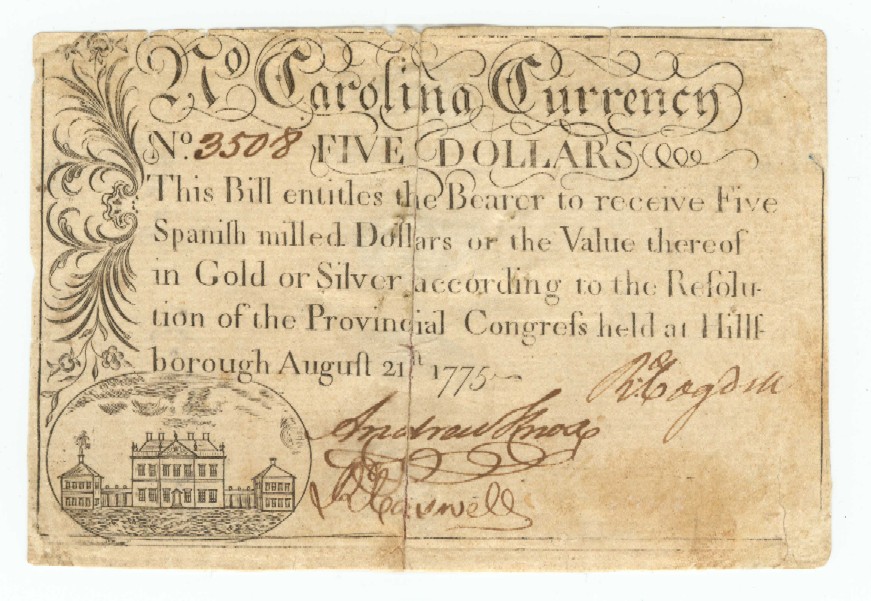 No Carolina Currency
No. 3508 FIVE DOLLARS
This Bill entitles the Bearer to receive Five
Spaniſh milled Dollars or the Value thereof
in Gold or Silver according to the Reſolu-
tion of the Provincial Congreſs held at Hillſ-
borough Auguſt 21ſt 1775
Rd Cogdell
Andrew Knox
Rd Caswell